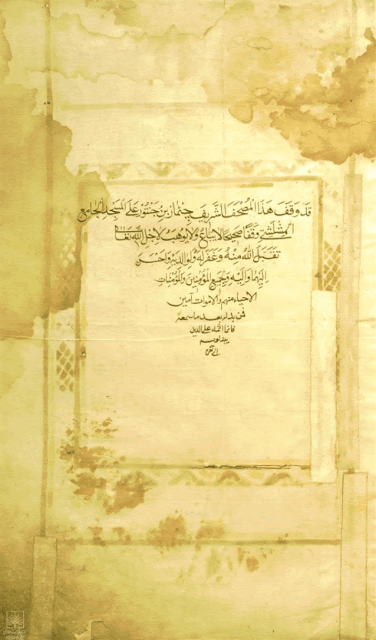 قد وقف هذا المصحف الشريف جتماز بن جنتور على المسجد الجامع
وقفا صحيحا لا يباع ولا يوهب لاجل الله تعالى
تقبل الله منه وغفر له ولوالديه واحسن
اليهما واليه ولجميع المؤمنين والمؤمنات
الاحياء منهم والاموات آمين
فمن بدله بعد ما سمعه
فانما اثمه على الذين
يبدلونه